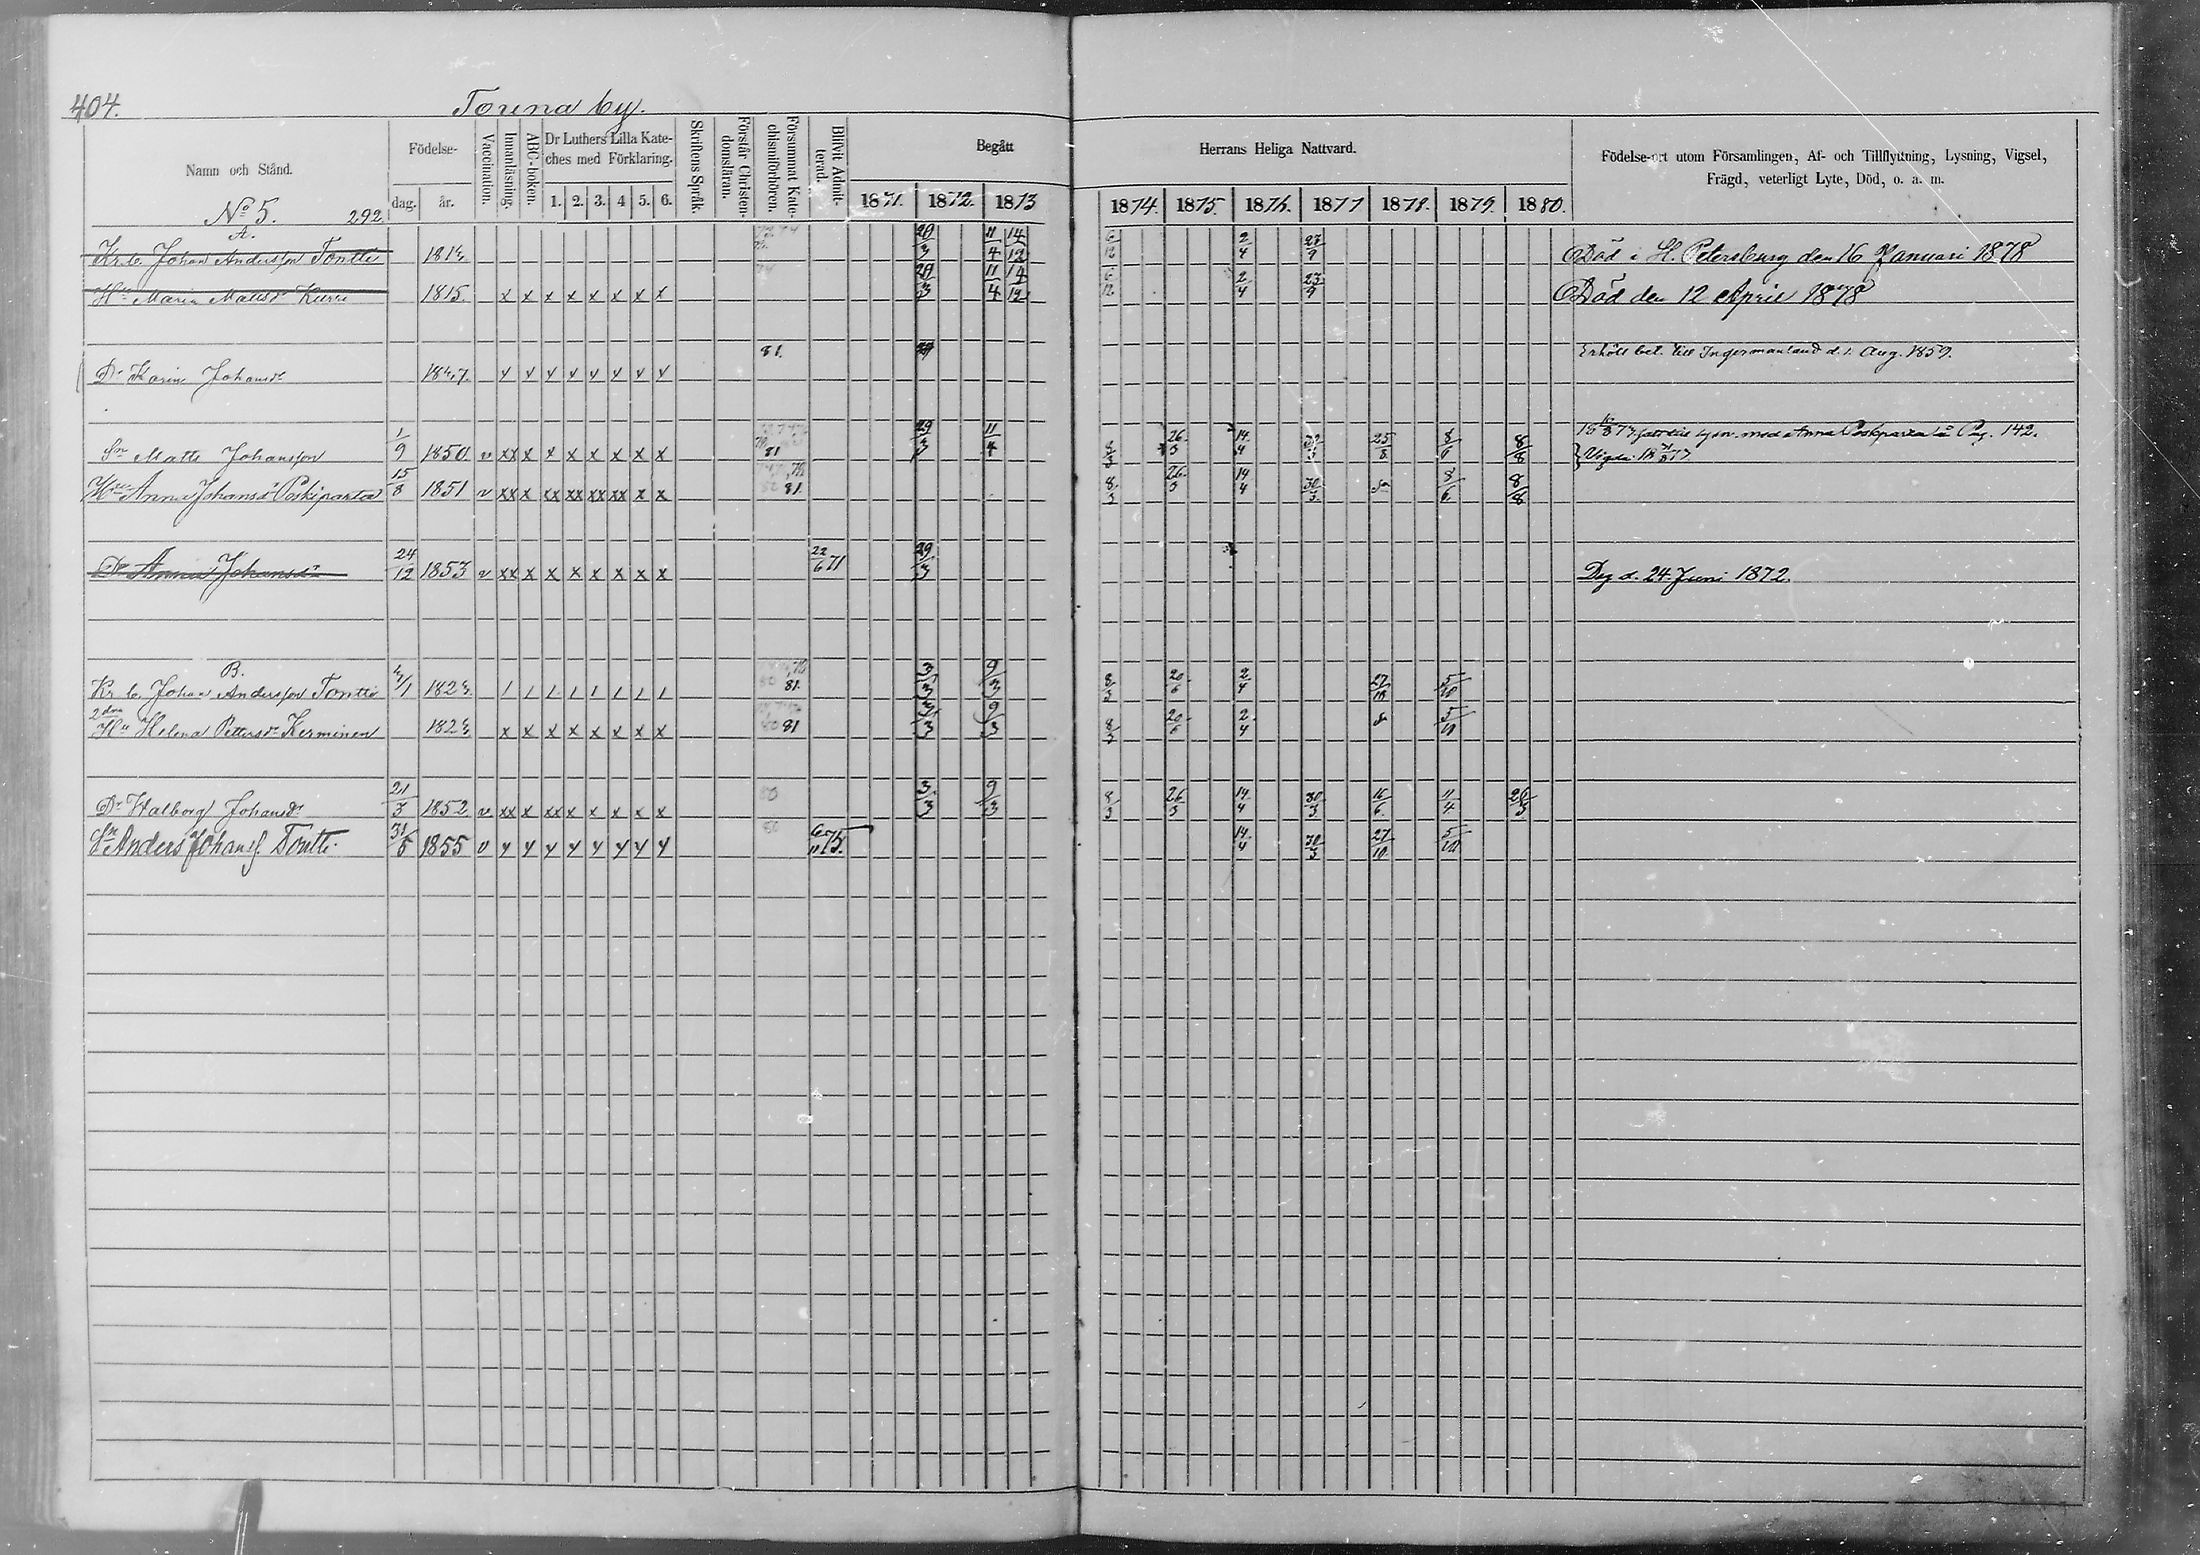 404. Touna by.
Namn och Stånd.
Födelse-
dag. år.
Vaccination.
Innanläsning.
ABC-boken.
Dr Luthers Lilla Kate-
ches med Förklaring.
1. 2. 3. 4 5. 6.
Skriftens Språk.
Förstår Christen-
domsläran.
Försummat Kate-
chismiförhören.
Blifvit Admit-
terad.
Begått Herrans Heliga Nattvard.
1871. 1872. 1873 1874. 1875. 1876. 1877 1878. 1879. 1880.
Födelse-ort utom Församlingen, Af- och Tillflyttning, Lysning, Vigsel,
Frägd, veterligt Lyte, Död, o. a. m.
No 5. 292
A.
Kr. b. Johan Andersson Tontti 1814 29/3 11/4 14/12 6/12 2/4 23/9 Död i St. Petersburg den 16 Januari 1878
Hu Maria Mattsdr Kurri 1815. x x x x x x x x 29/3 11/4 14/12 6/12 2/4 23/9 Död den 12 April 1878
Dr Karin Johansdr 1847. 81. Erhöll bet. till Ingermanland d. 1. Aug. 1859.
Sn Matts Johansson 1/9 1850. v xx x x x x x x x 81 29/3 11/4 26/3 14/4 25/8 8/6 8/8 med Anna Poskiparta å Pag. 142.
Vigda
Hu Anna Johansdr Poskiparta 15/8 1851 v xx x xx xx xx xx x x 81. 8/3 26/3 14/4 30/3 8/6 8/8
Dr Anna Johansdr 24/12 1853 v xx x x x x x x x 22/6 71 29/3 Dog d. 24 Juni 1872.
B.
Kr b. Johan Andersson Tontti 81. 3/3 9/3 8/3 20/6 2/4 27/10 5/10
2dra
Hu Helena Pettersdr Kerminen x x x x x x x x 80 81 3/3 9/3 8/3 20/6 2/4 5/10
Dr Walborg Johansdr 21/3 1852 v xx x xx x x x x x 80 3/3 9/3 8/3 26/3 14/4 30/3 16/6 11/4 26/3
Sn Anders Johanss. Tontti. 31/5 1855 v 80 6/11 75. 14/4 30/3 27/10 5/10